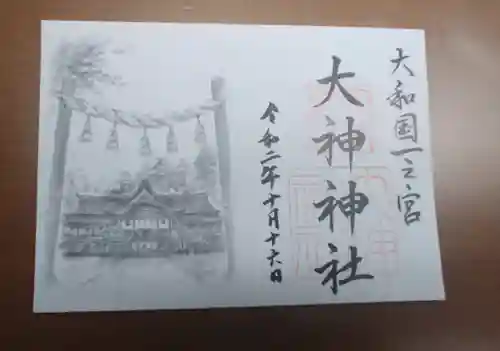 大和国一之宮
大神神社
令和二年十月十六日